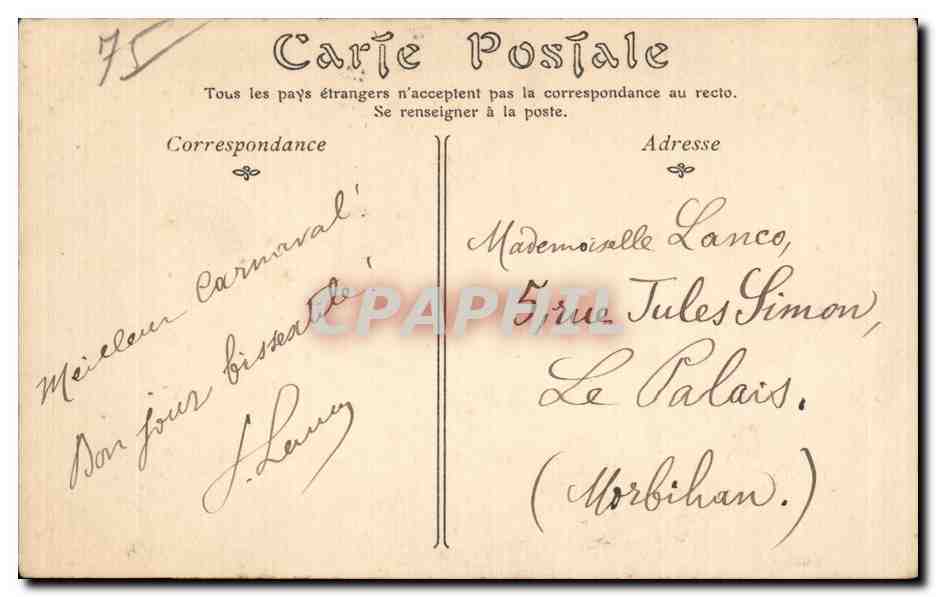 75
Carte Postale
Tous les pays étrangers n'acceptent pas la correspondance au recto.
Se renseigner à la poste.
Correspondance
Meilleur Carnaval!
Bon jour bissextile!
Adresse
Mademoiselle Lanco,
5, rue Jules Simon,
Le Palais.
(Morbihan.)
CPAPHIL